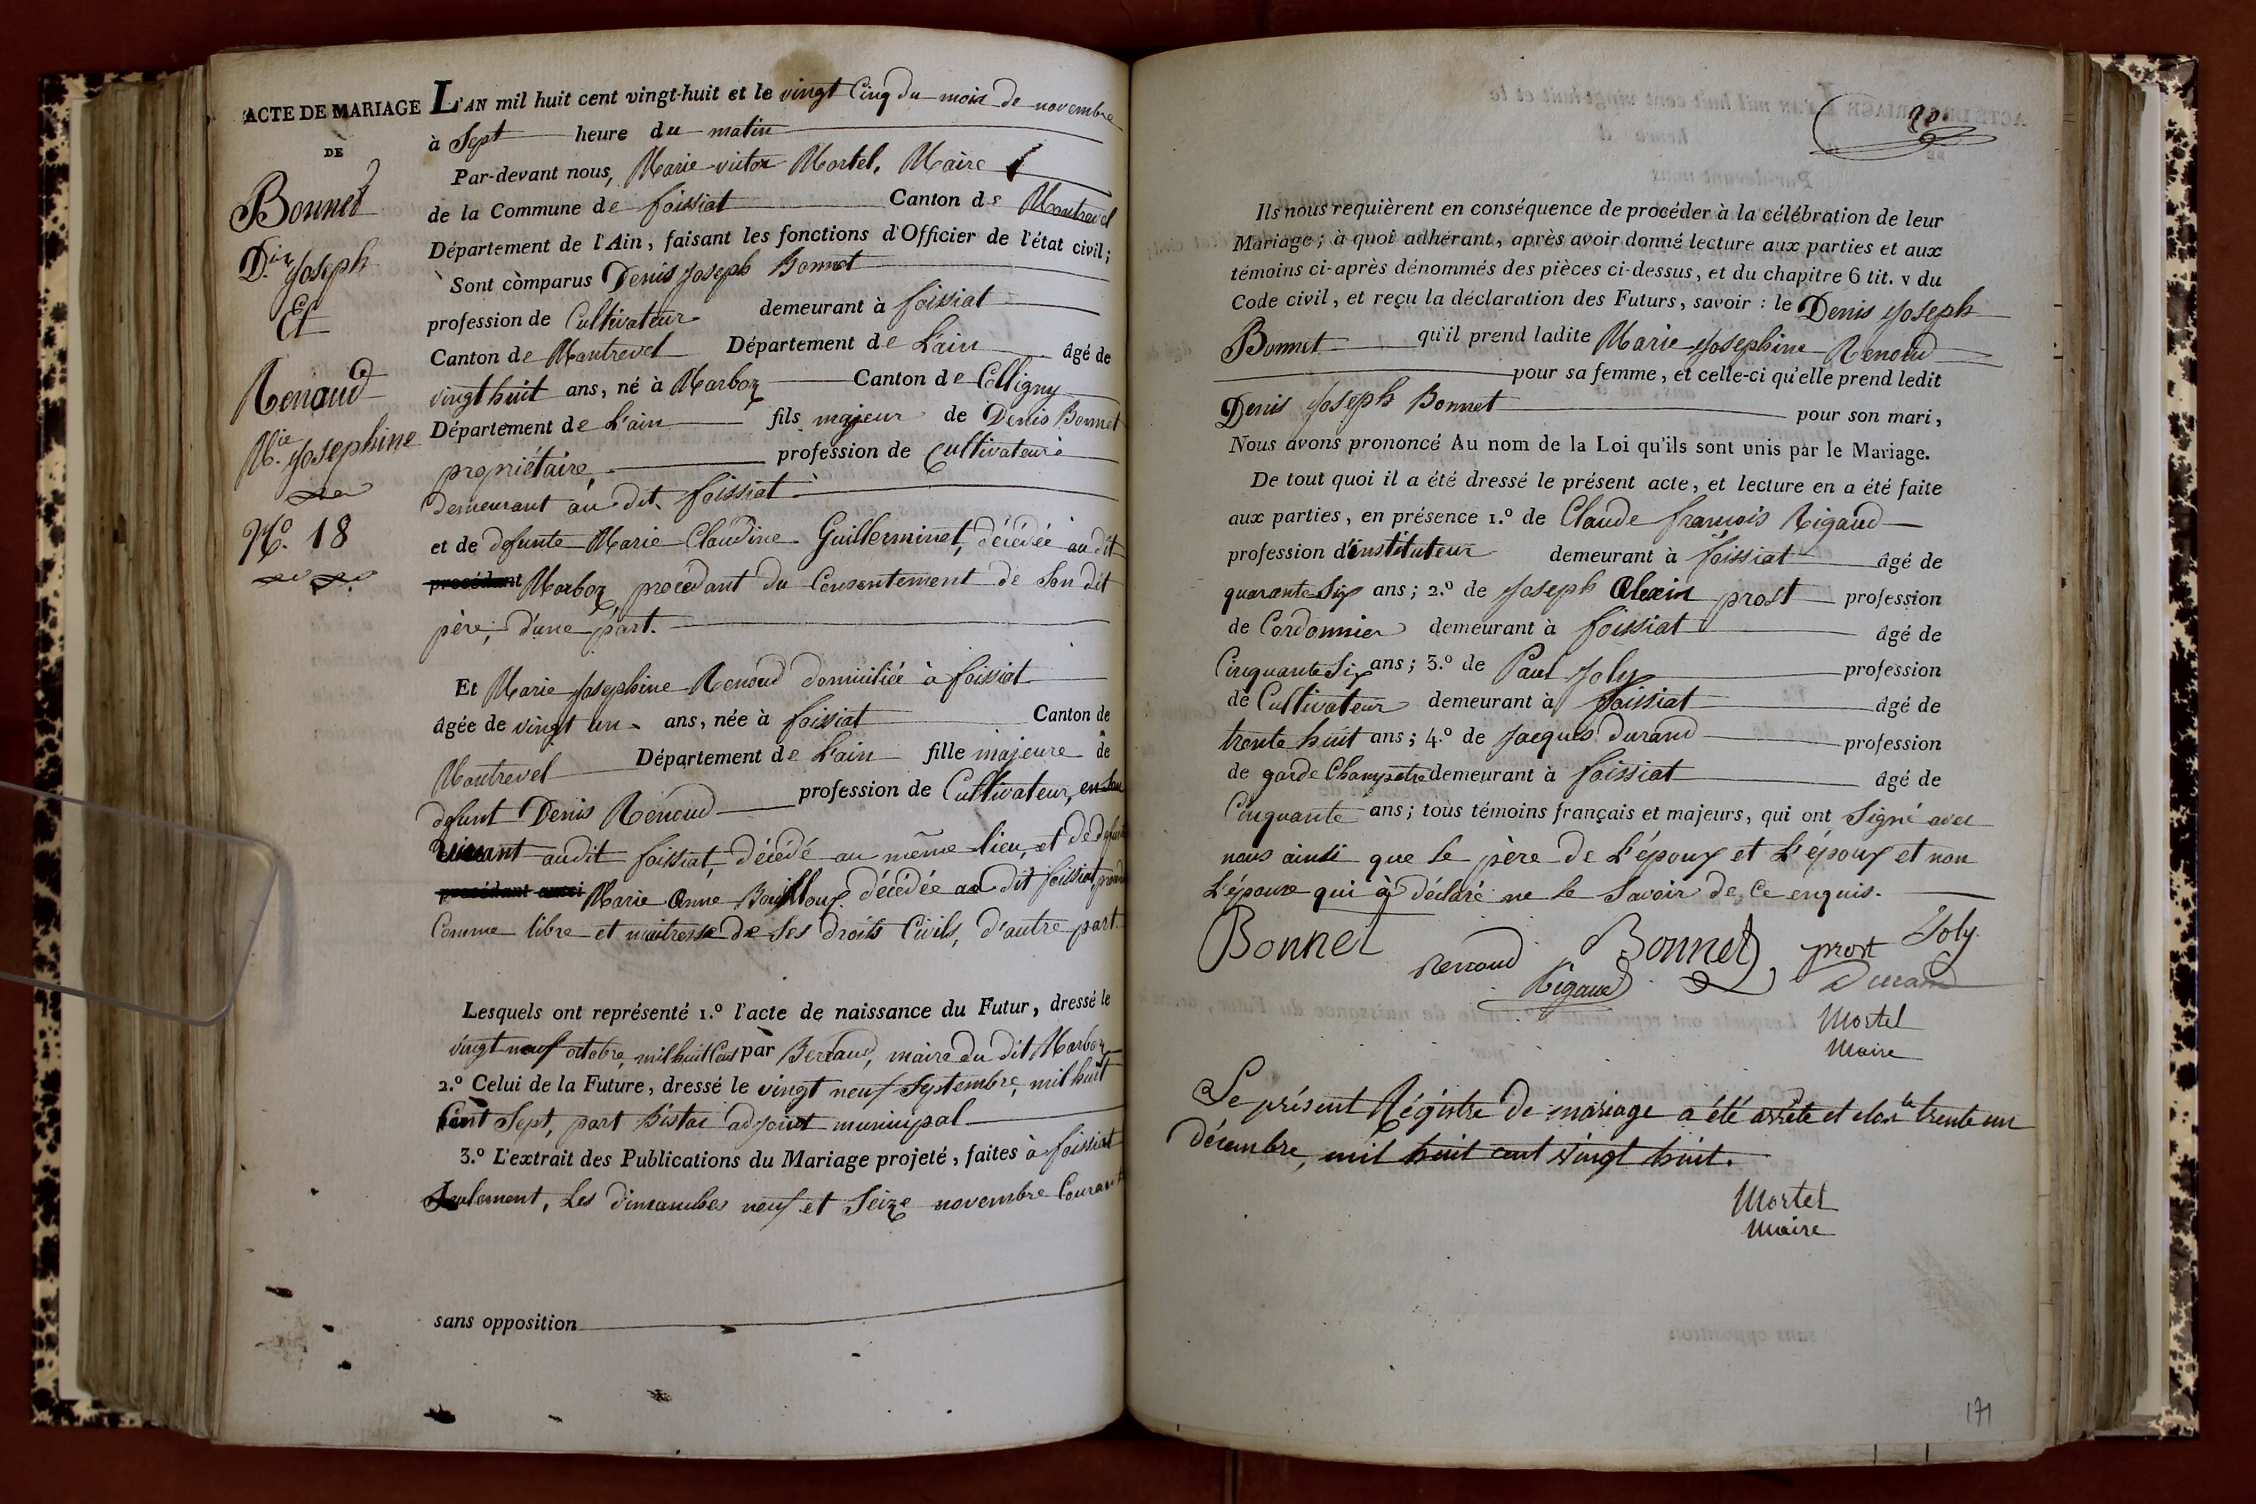 ACTE DE MARIAGE
DE
Bonnet
D.is Joseph
Et
Renoud
M.ie Josephine
N.o 18
L'AN mil huit cent vingt-huit et le vingt Cinq du mois de novembre
à Sept heure du matin
Par-devant nous, Marie victor Mortel, Maire
de la Commune de foissiat Canton de Montrevel
Département de l'Ain, faisant les fonctions d'Officier de l'état civil;
Sont comparus Denis Joseph Bonnet
profession de Cultivateur demeurant à foissiat
Canton de Montrevel Département de L'ain âgé de
vingt huit ans, né à Marboz Canton de Colligny
Département de L'ain fils majeur de Denis Bonnet
propriétaire, profession de Cultivateur
demeurant au dit foissiat
et de defunte Marie Claudine Guillerminet, décédée au dit
procédant Marboz, procedant du Consentement de Son dit
père, d'une part.
Et Marie Josephine Renoud domiciliée à foissiat
âgée de vingt un ans, née à foissiat Canton de
Montrevel Département de L'ain fille majeure de
defunt Denis Renoud profession de Cultivateur,
audit foissiat, décédé au même lieu, et de defunte
procédant aussi Marie Anne Bouilloux décédée au dit foissiat,
Comme libre et maitresse de Ses droits Civils, d'autre part.
Lesquels ont représenté 1.o l'acte de naissance du Futur, dressé le
vingt neuf octobre, mil huit Cent par Berraud, maire du dit Marboz
2.o Celui de la Future, dressé le vingt neuf Septembre, mil huit
Cent Sept, part adjoint municipal
3.o L'extrait des Publications du Mariage projeté, faites à foissiat
Seulement, Les dimanches neuf et Seize novembre Courant
sans opposition
Ils nous requièrent en conséquence de procéder à la célébration de leur
Mariage; à quoi adhérant, après avoir donné lecture aux parties et aux
témoins ci-après dénommés des pièces ci-dessus, et du chapitre 6 tit. v du
Code civil, et reçu la déclaration des Futurs, savoir: le Denis Joseph
Bonnet qu'il prend ladite Marie Josephine Renoud
pour sa femme, et celle-ci qu'elle prend ledit
Denis Joseph Bonnet pour son mari,
Nous avons prononcé Au nom de la Loi qu'ils sont unis par le Mariage.
De tout quoi il a été dressé le présent acte, et lecture en a été faite
aux parties, en présence 1.o de Claude françois Rigaud
profession d'instituteur demeurant à foissiat âgé de
quarante Six ans; 2.o de Joseph Alexin prost profession
de Cordonnier demeurant à foissiat âgé de
Cinquante Six ans; 3.o de Paul Joly profession
de Cultivateur demeurant à foissiat âgé de
trente huit ans; 4.o de Jacques Durand profession
de garde Champetre demeurant à foissiat âgé de
Cinquante ans; tous témoins français et majeurs, qui ont Signé avec
nous ainsi que le père de L'époux et L'époux et non
L'épouse qui à déclaré ne le Savoir de Ce enquis.
Bonnet Renoud Bonnet prost Joly
Rigaud Durand
Mortel
Maire
Le présent Régistre de mariage a été arrêté et clos le trente un
décembre, mil huit cent vingt huit.
Mortel
Maire
171